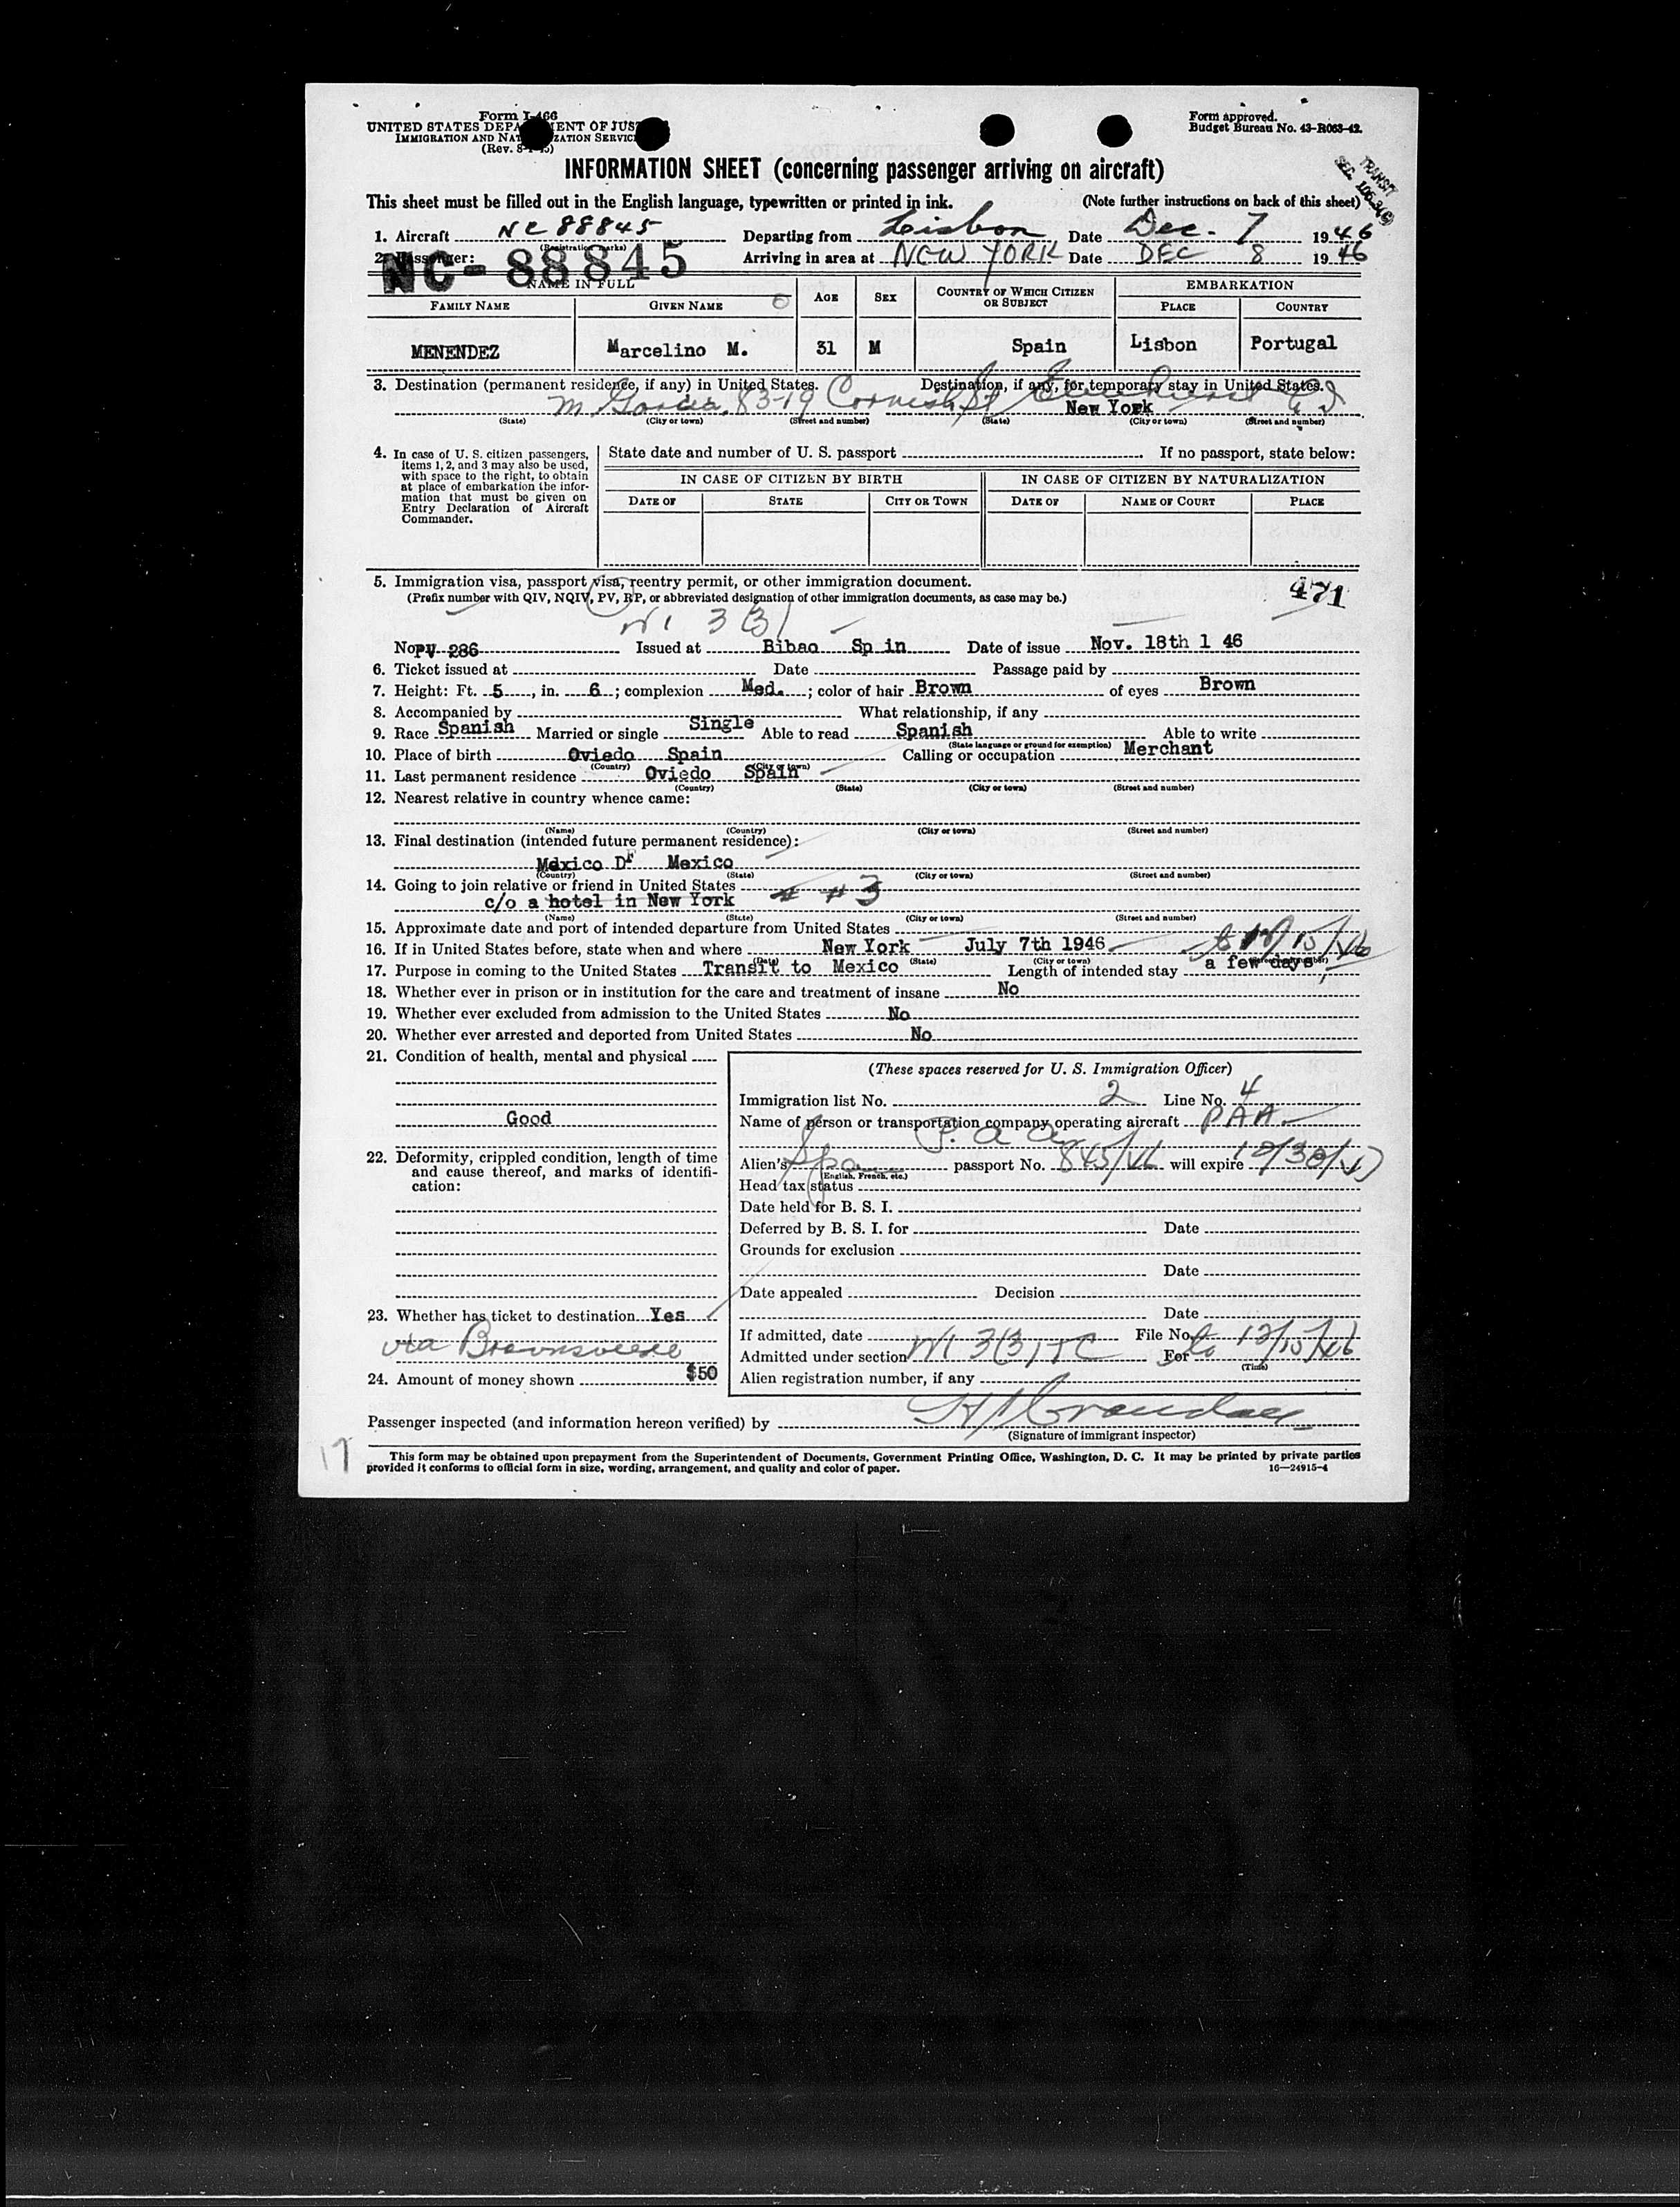 Form I-466
UNITED STATES DEPARTMENT OF JUSTICE
IMMIGRATION AND NATURALIZATION SERVICE
(Rev. 8-1-45)
Form approved.
Budget Bureau No. 43-R063-42.
INFORMATION SHEET (concerning passenger arriving on aircraft)
TRANSIT
SEC. 106.3(6)
This sheet must be filled out in the English language, typewritten or printed in ink. (Note further instructions on back of this sheet)
1. Aircraft NC 88845 Departing from Lisbon Date Dec. 7 1946
(Registration marks)
2. Passenger: Arriving in area at NEW YORK Date DEC 8 1946
NC-88845
NAME IN FULL AGE SEX COUNTRY OF WHICH CITIZEN OR SUBJECT EMBARKATION
FAMILY NAME GIVEN NAME PLACE COUNTRY
MENENDEZ Marcelino M. 31 M Spain Lisbon Portugal
3. Destination (permanent residence, if any) in United States. Destination, if any, for temporary stay in United States.
M. Garcia 83-19 Cornish St Elmhurst L I
New York
(State) (City or town) (Street and number) (State) (City or town) (Street and number)
4. In case of U. S. citizen passengers, items 1, 2, and 3 may also be used, with space to the right, to obtain at place of embarkation the information that must be given on Entry Declaration of Aircraft Commander.
State date and number of U. S. passport If no passport, state below:
IN CASE OF CITIZEN BY BIRTH IN CASE OF CITIZEN BY NATURALIZATION
DATE OF STATE CITY OR TOWN DATE OF NAME OF COURT PLACE
5. Immigration visa, passport visa, reentry permit, or other immigration document.
471
(Prefix number with QIV, NQIV, PV, RP, or abbreviated designation of other immigration documents, as case may be.)
3(3)
No PV 286 Issued at Bibao Sp in Date of issue Nov. 18th 1 46
6. Ticket issued at Date Passage paid by
7. Height: Ft. 5, in. 6; complexion Med.; color of hair Brown of eyes Brown
8. Accompanied by What relationship, if any
9. Race Spanish Married or single Single Able to read Spanish Able to write
(State language or ground for exemption)
10. Place of birth Oviedo Spain Calling or occupation Merchant
(Country) (City or town)
11. Last permanent residence Oviedo Spain
(Country) (State) (City or town) (Street and number)
12. Nearest relative in country whence came:
(Name) (Country) (City or town) (Street and number)
13. Final destination (intended future permanent residence):
México DF Mexico
(Country) (State) (City or town) (Street and number)
14. Going to join relative or friend in United States # #3
c/o a hotel in New York
(Name) (State) (City or town) (Street and number)
15. Approximate date and port of intended departure from United States
16. If in United States before, state when and where New York July 7th 1946 to 12/15/46
(Date) (State) (City or town) (Street and number)
17. Purpose in coming to the United States Transit to Mexico Length of intended stay a few days
18. Whether ever in prison or in institution for the care and treatment of insane No
19. Whether ever excluded from admission to the United States No
20. Whether ever arrested and deported from United States No
21. Condition of health, mental and physical
Good
22. Deformity, crippled condition, length of time and cause thereof, and marks of identification:
23. Whether has ticket to destination Yes
via Brownsville
24. Amount of money shown $50
(These spaces reserved for U. S. Immigration Officer)
Immigration list No. 2 Line No. 4
Name of person or transportation company operating aircraft PAA
P. A A
Alien's Span passport No. 845/46 will expire 10/30/47
(English, French, etc.)
Head tax status
Date held for B. S. I.
Deferred by B. S. I. for Date
Grounds for exclusion
Date
Date appealed Decision
Date
If admitted, date File No.
Admitted under section 3(3) TC For to 12/15/46
(Time)
Alien registration number, if any
Passenger inspected (and information hereon verified) by
(Signature of immigrant inspector)
17
This form may be obtained upon prepayment from the Superintendent of Documents, Government Printing Office, Washington, D. C. It may be printed by private parties
provided it conforms to official form in size, wording, arrangement, and quality and color of paper. 16—24915-4